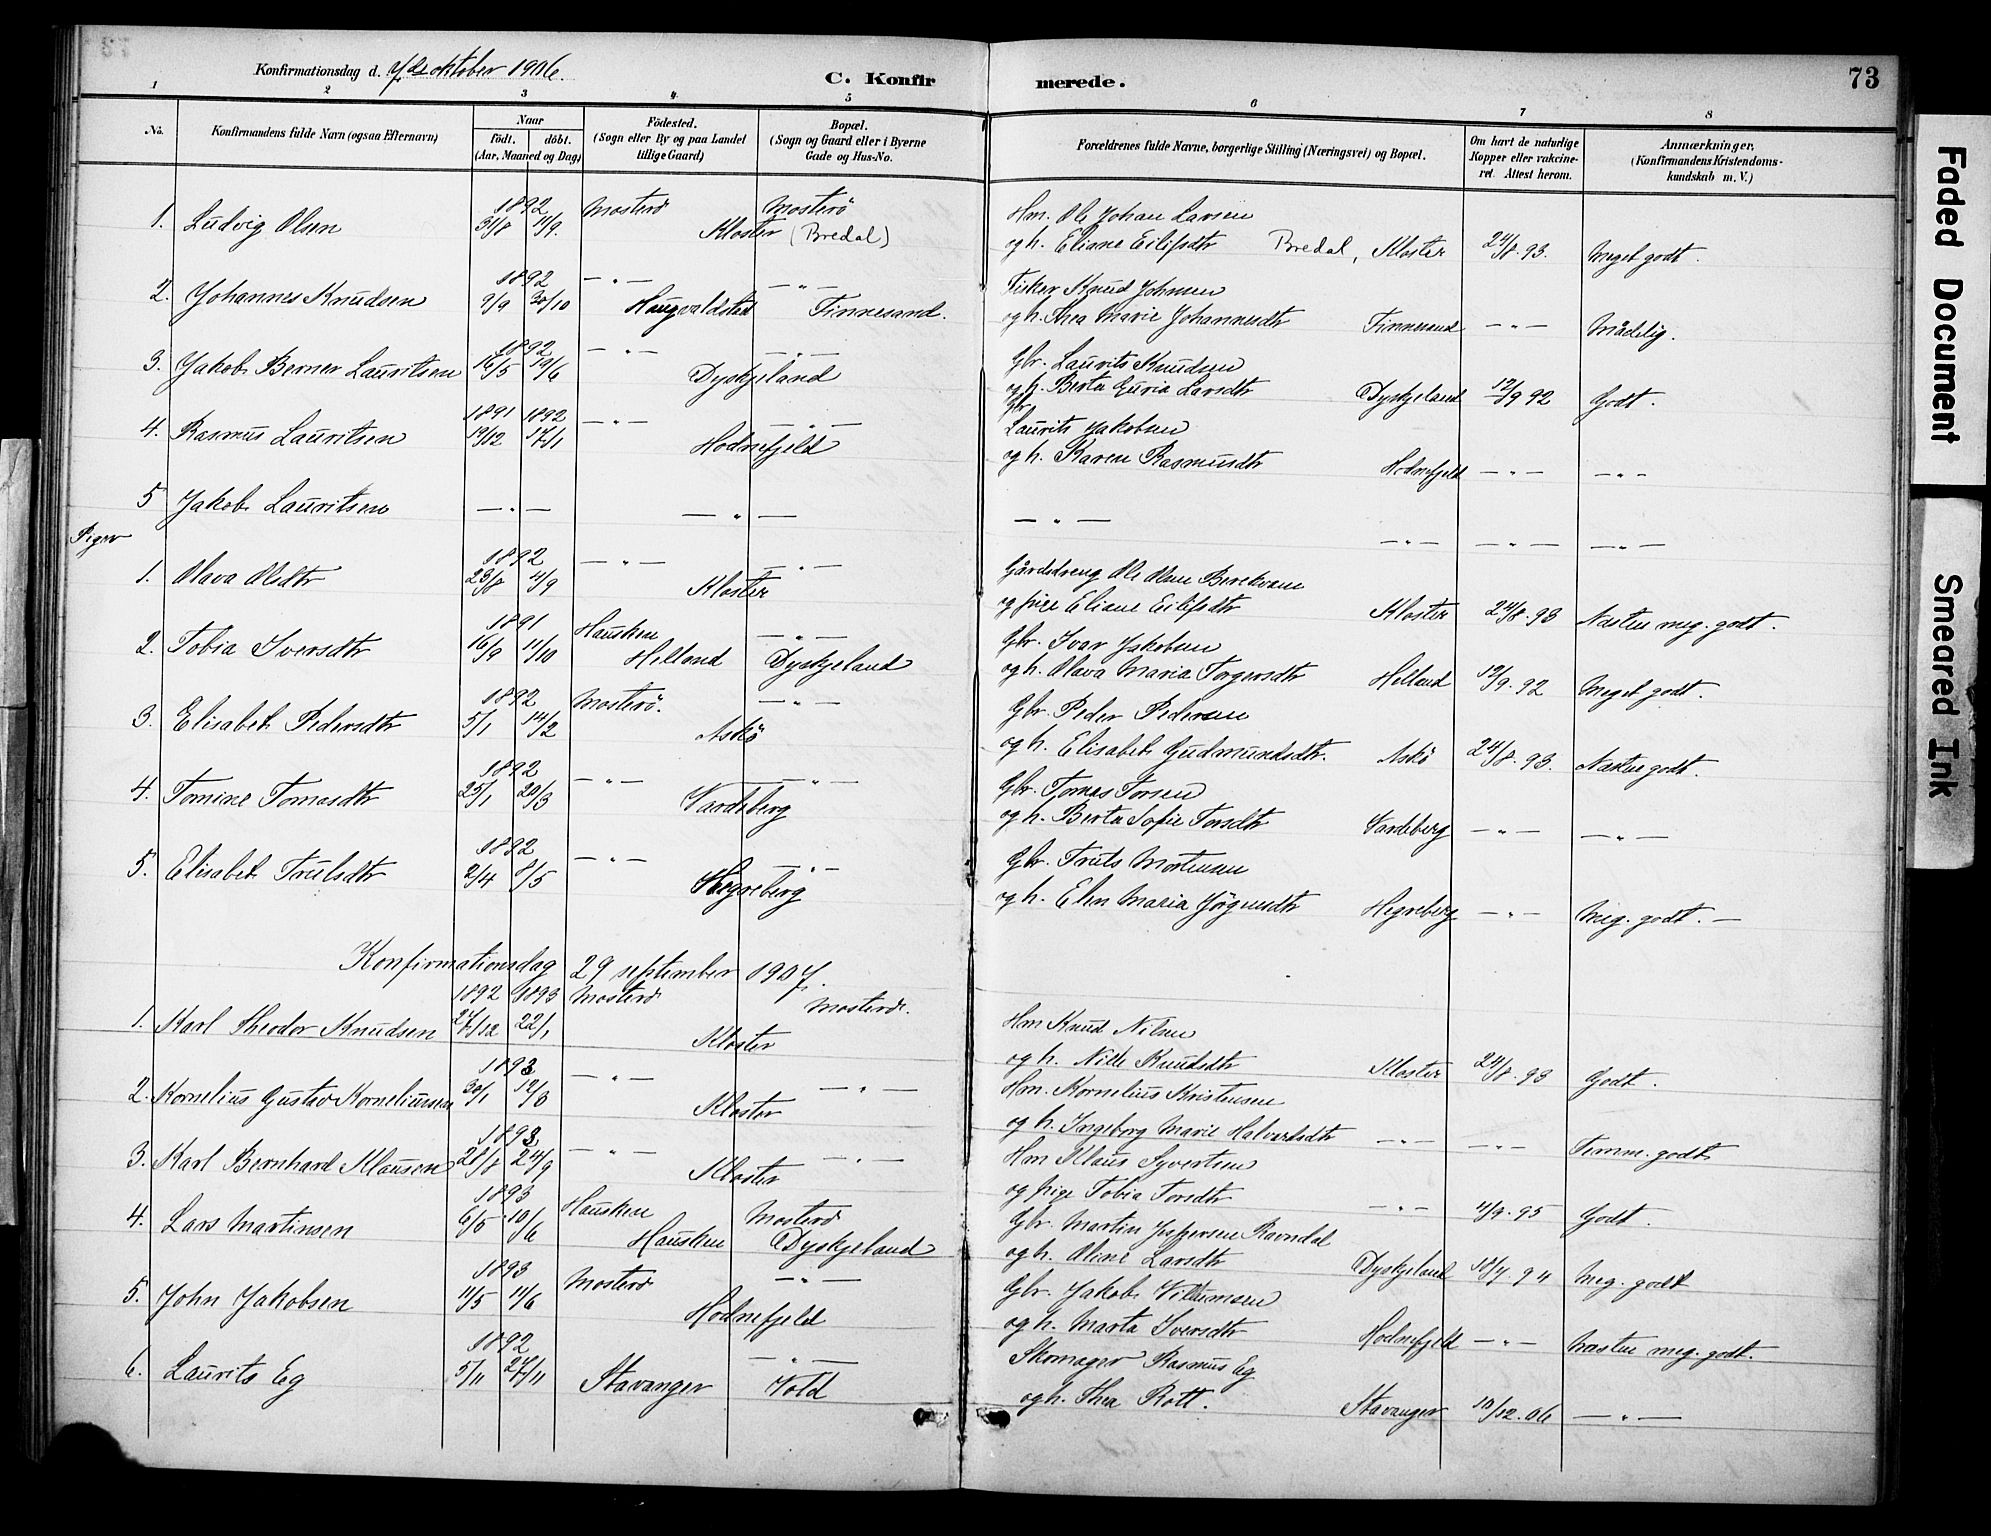 Konfirmationsdag d. 7de oktober 1906.
C. Konfirmerede.
73
1 2 3 4 5 6 7 8
No.
Konfirmandens fulde Navn (ogsaa Efternavn)
Naar
födt. döbt.
(Aar, Maaned og Dag)
Födested.
(Sogn eller By og paa Landet tillige Gaard)
Bopæl.
(Sogn og Gaard eller i Byerne Gade og Hus-No.
Forældrenes fulde Navne, borgerlige Stilling (Næringsvei) og Bopæl.
Om havt de naturlige Kopper eller vakcineret. Attest herom.
Anmærkninger,
(Konfirmandens Kristendomskundskab m. V.)
1. Ludvig Olsen 1892 31/8 11/9. Mosterö Mosterö Kloster (Bredal) Hm. Ole Johan Larsen
og h. Eliane Eilifsdtr Bredal, Kloster 24/8. 93. Meget godt.
2. Johannes Knudsen 1892 9/9 30/10 —"— Haugvaldstad —"— Finnesand. Fisker Knud Johnsen
og h. Thea Marie Johannesdtr Finnesand —"— Mådelig.
3. Jakob Berner Lauritsen 1892 16/5 19/6 —"— —"— Dyskjeland Gbr. Laurits Knudsen
og h. Berta Guria Larsdtr Dyskjeland 12/9 92 Godt.
4. Rasmus Lauritsen 1891 19/12 1892 17/1 —"— —"— Hodnefjeld Gbr. Laurits Jakobsen
og h. Karen Rasmusdtr Hodnefjeld —"— —"—
5 Jakob Lauritsen —"— —"— —"— —"— —"— —"—
Piger
1. Olava Olsdtr 1892 23/8 11/9 —"— —"— Kloster Gårdsdreng Ole Olsen Berekvam
og pige Eliane Eilifsdtr Kloster 24/8. 93 Næsten meg. godt.
2. Tobia Iversdtr 1891 16/9 11/10 Hausken Helland —"— Dyskjeland Gbr. Ivar Jakobsen
og h. Olava Maria Torgersdtr Helland 12/9. 92 Meget godt.
3. Elisabet Pedersdtr 1892 5/1 14/2 Mosterö. —"— Askö Gbr. Peder Pedersen
og h. Elisabet Gudmundsdtr. Askö 24/8. 93. Næsten godt.
4. Tomine Tomasdtr 1892 25/1 20/3 —"— —"— Vardeberg Gbr. Tomas Torsen
og h. Berta Sofie Torsdtr Vardeberg —"— —"—
5. Elisabet Trulsdtr 1892 2/4 8/5 —"— —"— Hegreberg Gbr. Truls Mortensen
og h. Elen Maria Jörgensdtr Hegreberg —"— Meg. godt. —
Konfirmationsdag 29 september 1907.
1. Karl Theodor Knudsen 1892 27/12 1893 22/1 Mosterö Mosterö. Kloster Hm Knud Nilsen
og h. Nille Knudsdtr Kloster 24/8. 93 Godt.
2. Kornelius Gustav Korneliussen 1893 30/1 12/3 —"— —"— Kloster Hm. Kornelius Kristensen
og h. Ingeborg Marie Halvorsdtr —"— —"— Temm. godt
3. Karl Bernhard Klausen 1893 28/8 24/9 —"— —"— Kloster Hm Klaus Syvertsen
og pige Tobia Torsdtr —"— 4/9. 95 Godt.
4. Lars Martinsen 1893 6/5 10/6 Hausken Hausken Mosterö Dyskjeland Gbr. Martin Jespersen Ravndal
og h. Oline Larsdtr Dyskjeland 18/7 94 Meg. godt
5. John Jakobsen 1893 11/5 11/6 Mosterö —"— Hodnefjeld Gbr. Jakob Villumsen
og h. Marta Iversdtr Hodnefjeld —"— Næsten meg. godt.
6. Laurits Eg 1892 5/11 27/11 Stavanger —"— Vold Skomager Rasmus Eg
og h. Thea Rott. Stavanger 10/12. 06 —"—
Faded Document
Smeared Ink